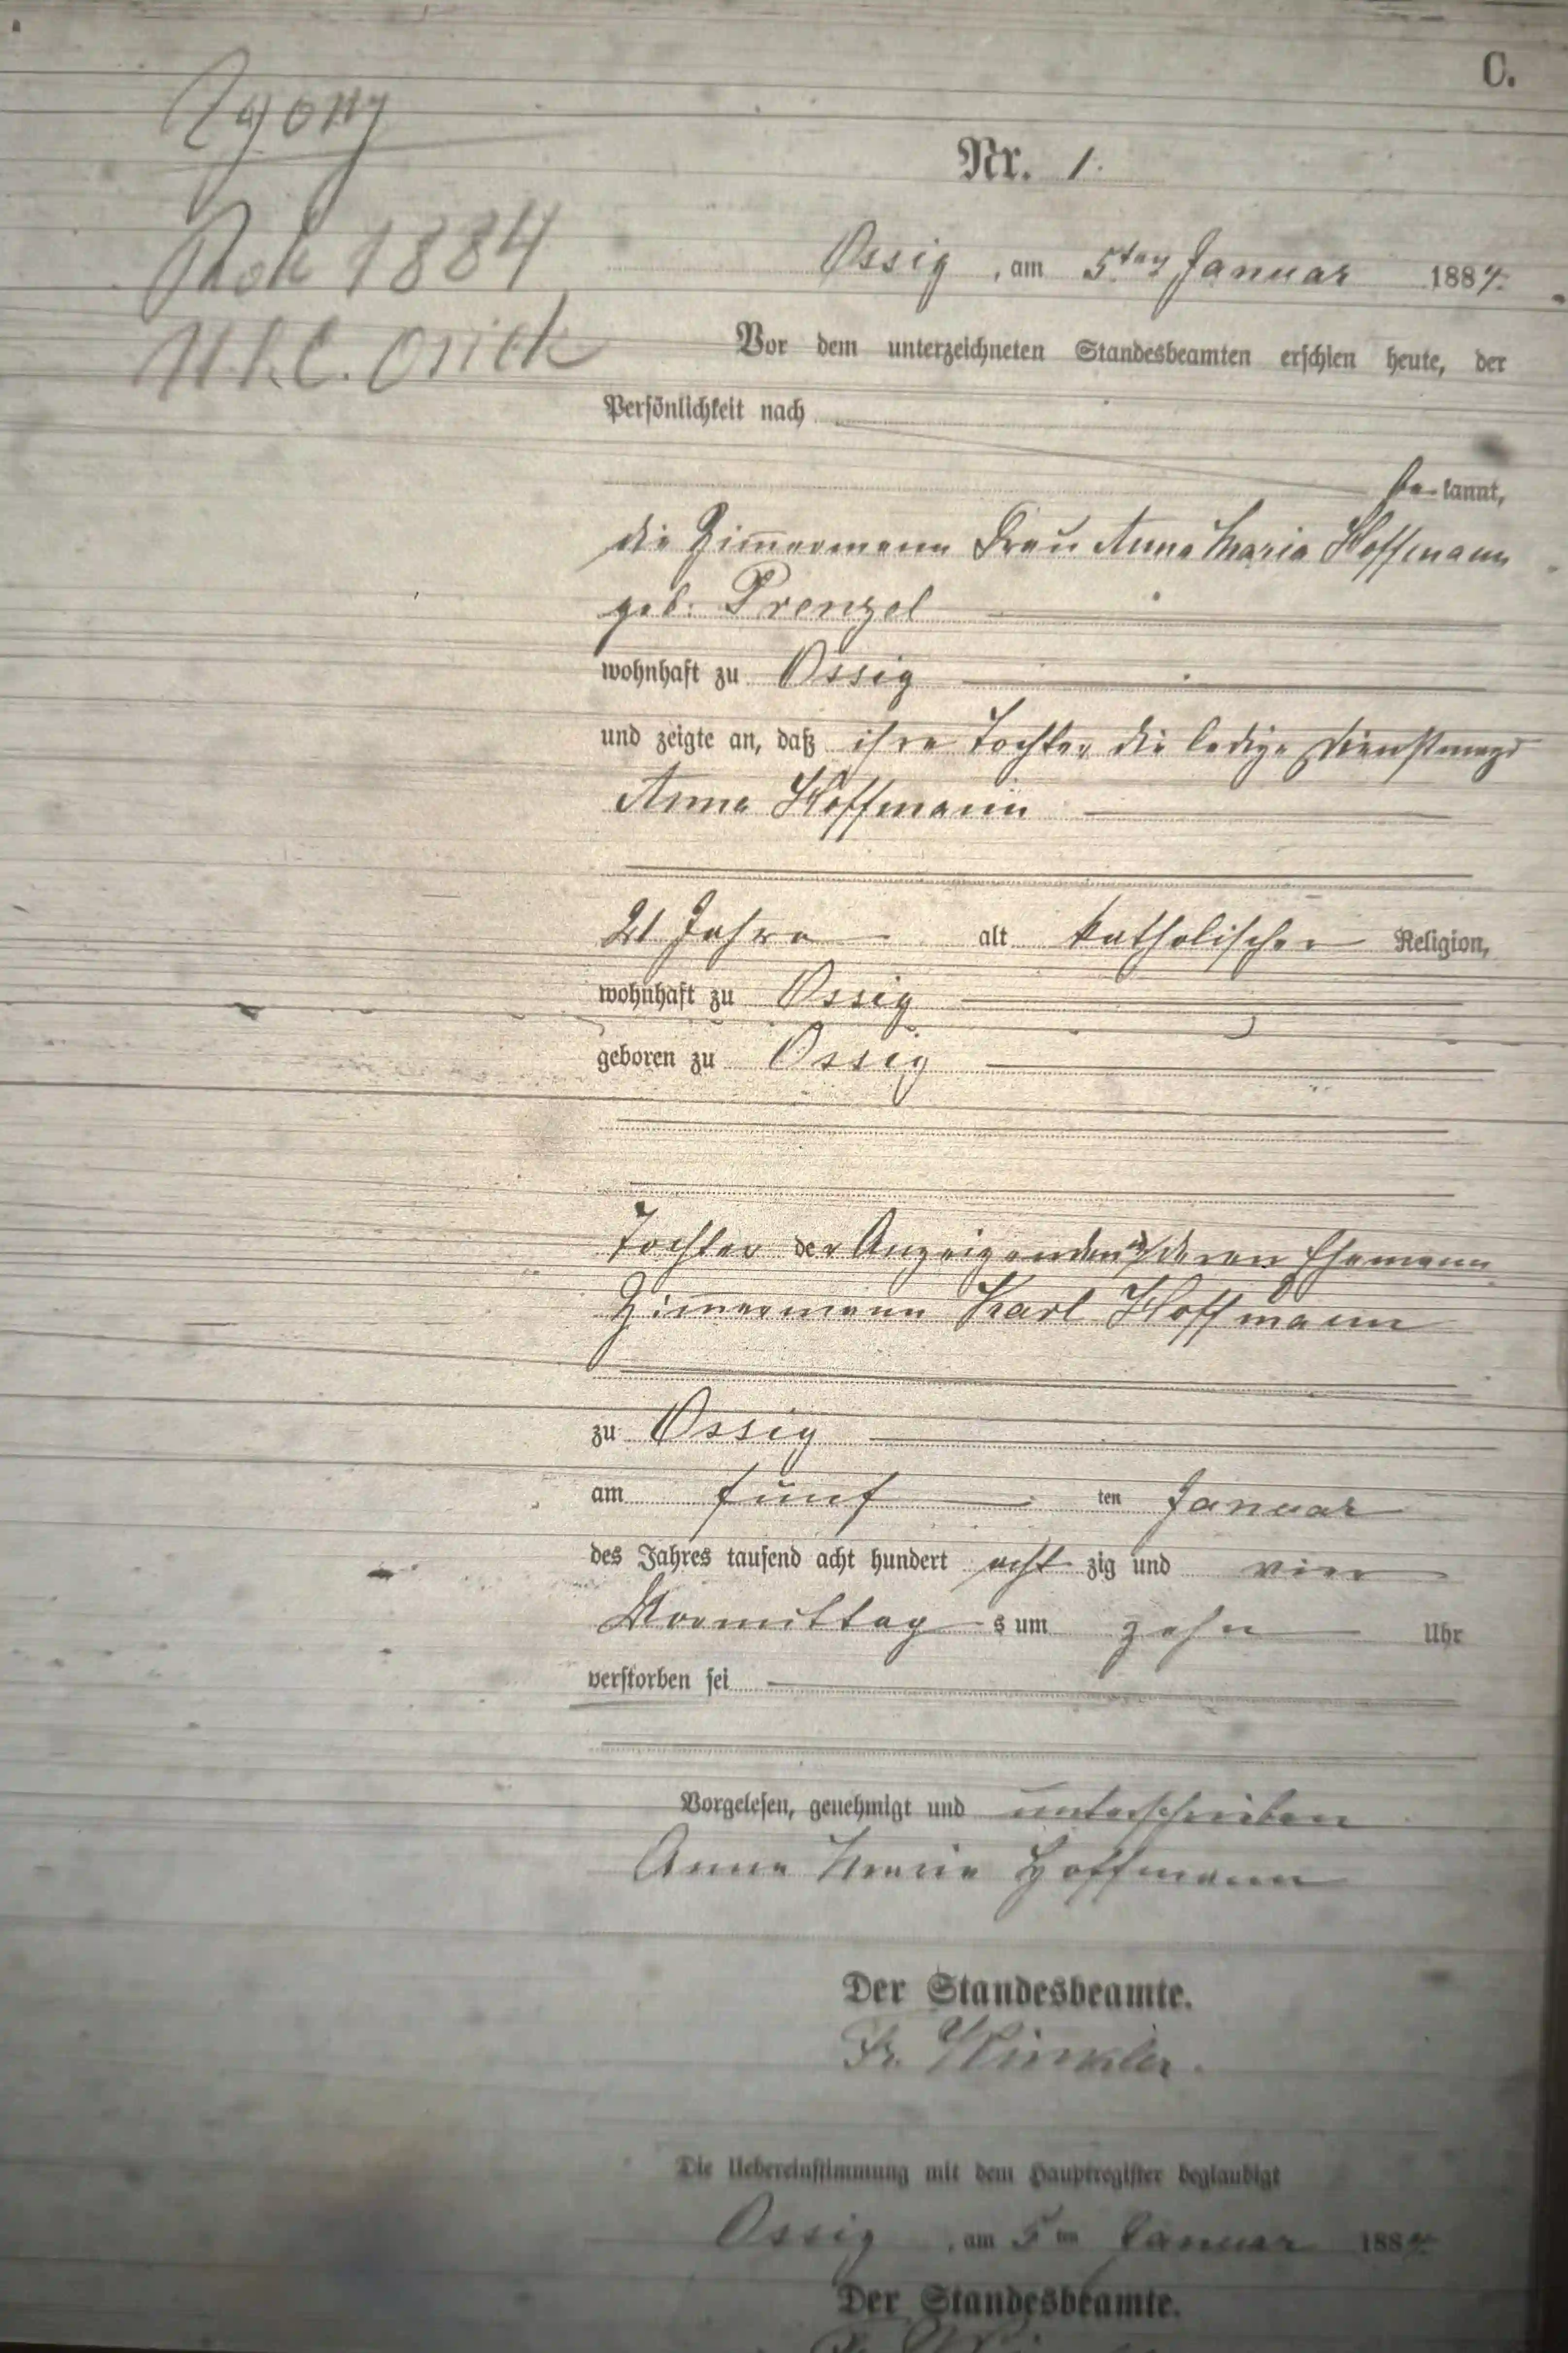 C.
Zgony
Rok 1884
U.S.C. Osiek
Nr. 1.
Ossig, am 5ten Januar 1884.
Vor dem unterzeichneten Standesbeamten erschien heute, der
Persönlichkeit nach
be kannt,
die Zim̄ermann Frau Anna Maria Hoffmann
geb. Prenzel
wohnhaft zu Ossig
und zeigte an, daß ihre Tochter die ledige Dienstmagd
Anna Hoffmann
21 Jahre alt katholischer Religion,
wohnhaft zu Ossig
geboren zu Ossig
Tochter der Anzeigenden und deren Ehemann
Zim̄ermann Karl Hoffmann
zu Ossig
am fünf ten Januar
des Jahres tausend acht hundert acht zig und vier
Vormittag s um zehn Uhr
verstorben sei
Vorgelesen, genehmigt und unterschrieben
Anna Maria Hoffmann
Der Standesbeamte.
Fr. Winkler.
Die Uebereinstimmung mit dem Hauptregister beglaubigt
Ossig, am 5ten Januar 1884.
Der Standesbeamte.